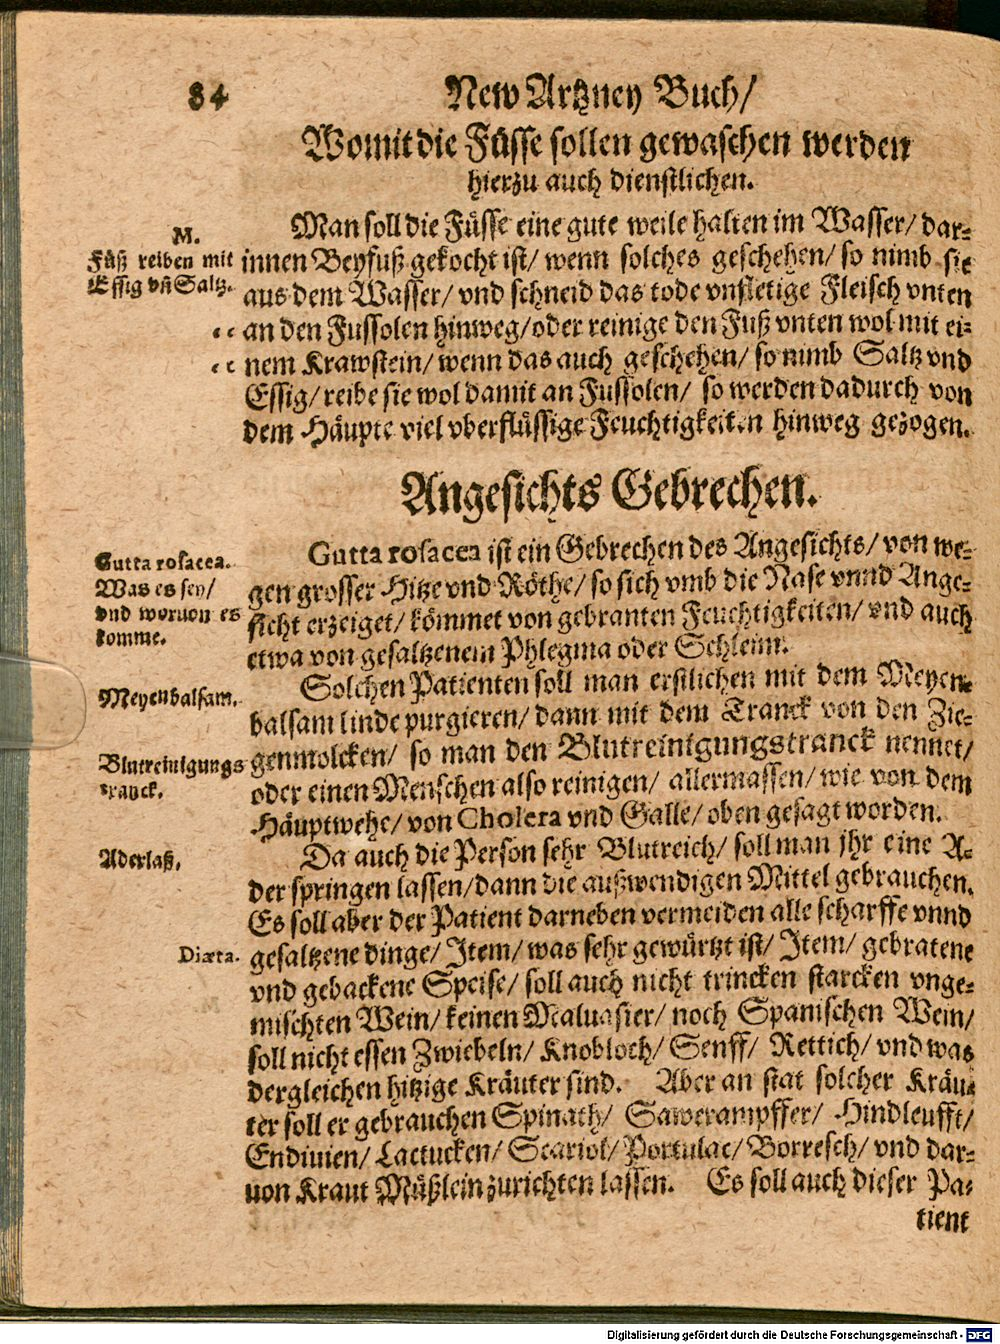 84
New Artzney Buch/
Womit die Füsse sollen gewaschen werden
hierzu auch dienstlichen.
M.
Füß reiben mit
Essig vñ Saltz.
Man soll die Füsse eine gute weile halten im Wasser/ dar-
innen Beyfuß gekocht ist/ wenn solches geschehen/ so nimb sie
aus dem Wasser/ vnd schneid das tode vnfletige Fleisch vnten
an den Fussolen hinweg/ oder reinige den Fuß vnten wol mit ei-
nem Krawstein/ wenn das auch geschehen/ so nimb Saltz vnd
Essig/ reibe sie wol damit an Fussolen/ so werden dadurch von
dem Häupte viel vberflüssige Feuchtigkeiten hinweg gezogen.
Angesichts Gebrechen.
Gutta rosacea.
Was es sey/
vnd woruon es
komme.
Gutta rosacea ist ein Gebrechen des Angesichts/ von we-
gen grosser Hitze vnd Röthe/ so sich vmb die Nase vnnd Ange-
sicht erzeiget/ kömmet von gebranten Feuchtigkeiten/ vnd auch
etwa von gesaltzenem Phlegma oder Schleim.
Meyenbalsam.
Solchen Patienten soll man erstlichen mit dem Meyen-
balsam linde purgieren/ dann mit dem Tranck von den Zie-
Blutreinigungs
tranck.
genmolcken/ so man den Blutreinigungstranck nennet/
oder einen Menschen also reinigen/ allermassen/ wie von dem
Häuptwehe/ von Cholera vnd Galle/ oben gesagt worden.
Aderlaß.
Da auch die Person sehr Blutreich/ soll man jhr eine A-
der springen lassen/ dann die außwendigen Mittel gebrauchen.
Es soll aber der Patient darneben vermeiden alle scharffe vnnd
Diæta.
gesaltzene dinge/ Item/ was sehr gewürtzt ist/ Item/ gebratene
vnd gebackene Speise/ soll auch nicht trincken starcken vnge-
mischten Wein/ keinen Maluasier/ noch Spanischen Wein/
soll nicht essen Zwiebeln/ Knobloch/ Senff/ Rettich/ vnd was
dergleichen hitzige Kräuter sind. Aber an stat solcher Kräu-
ter soll er gebrauchen Spinath/ Sawerampffer/ Hindleufft/
Endiuien/ Lactucken/ Scariol/ Portulac/ Borresch/ vnd dar-
uon Kraut Müßlein zurichten lassen. Es soll auch dieser Pa-
tient
Digitalisierung gefördert durch die Deutsche Forschungsgemeinschaft - DFG